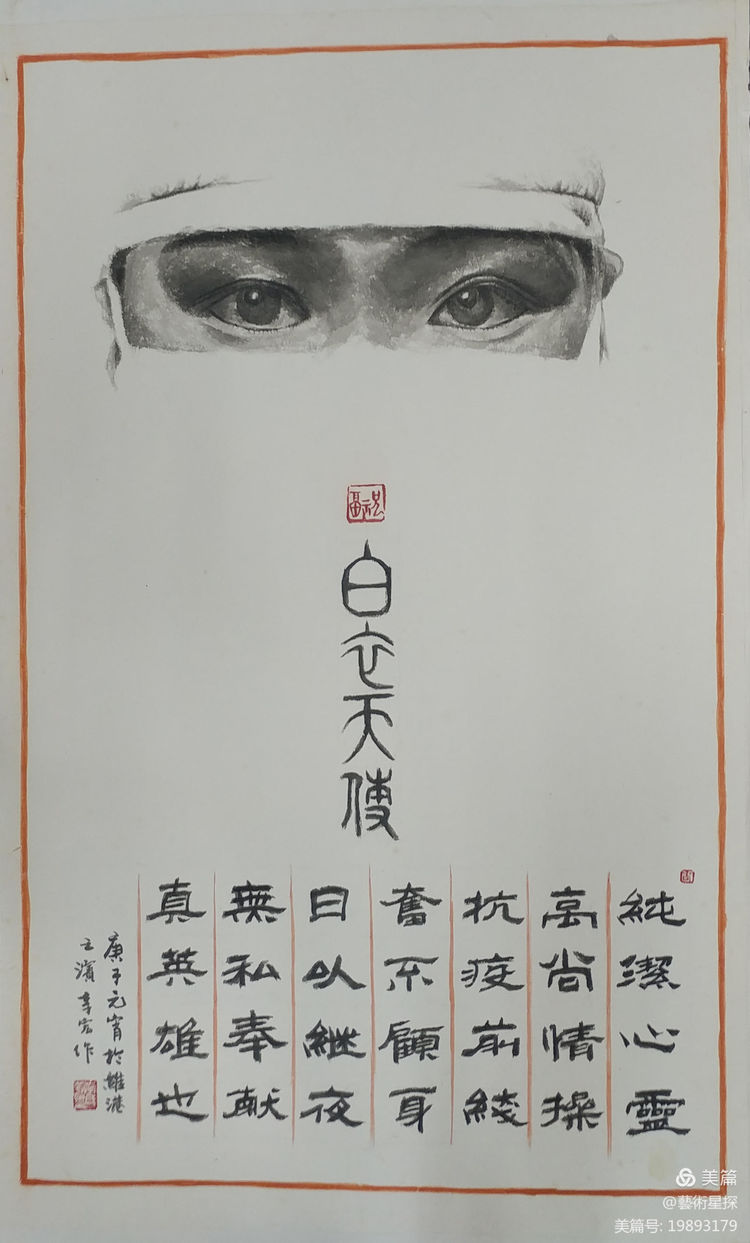 祝福
白衣天使
純潔心靈
高尚情操
抗疫前綫
奮不顧身
日以繼夜
無私奉献
真英雄也
庚子元宵於維港
之濱宏作
美篇
@藝術星探
美篇号: 19893179